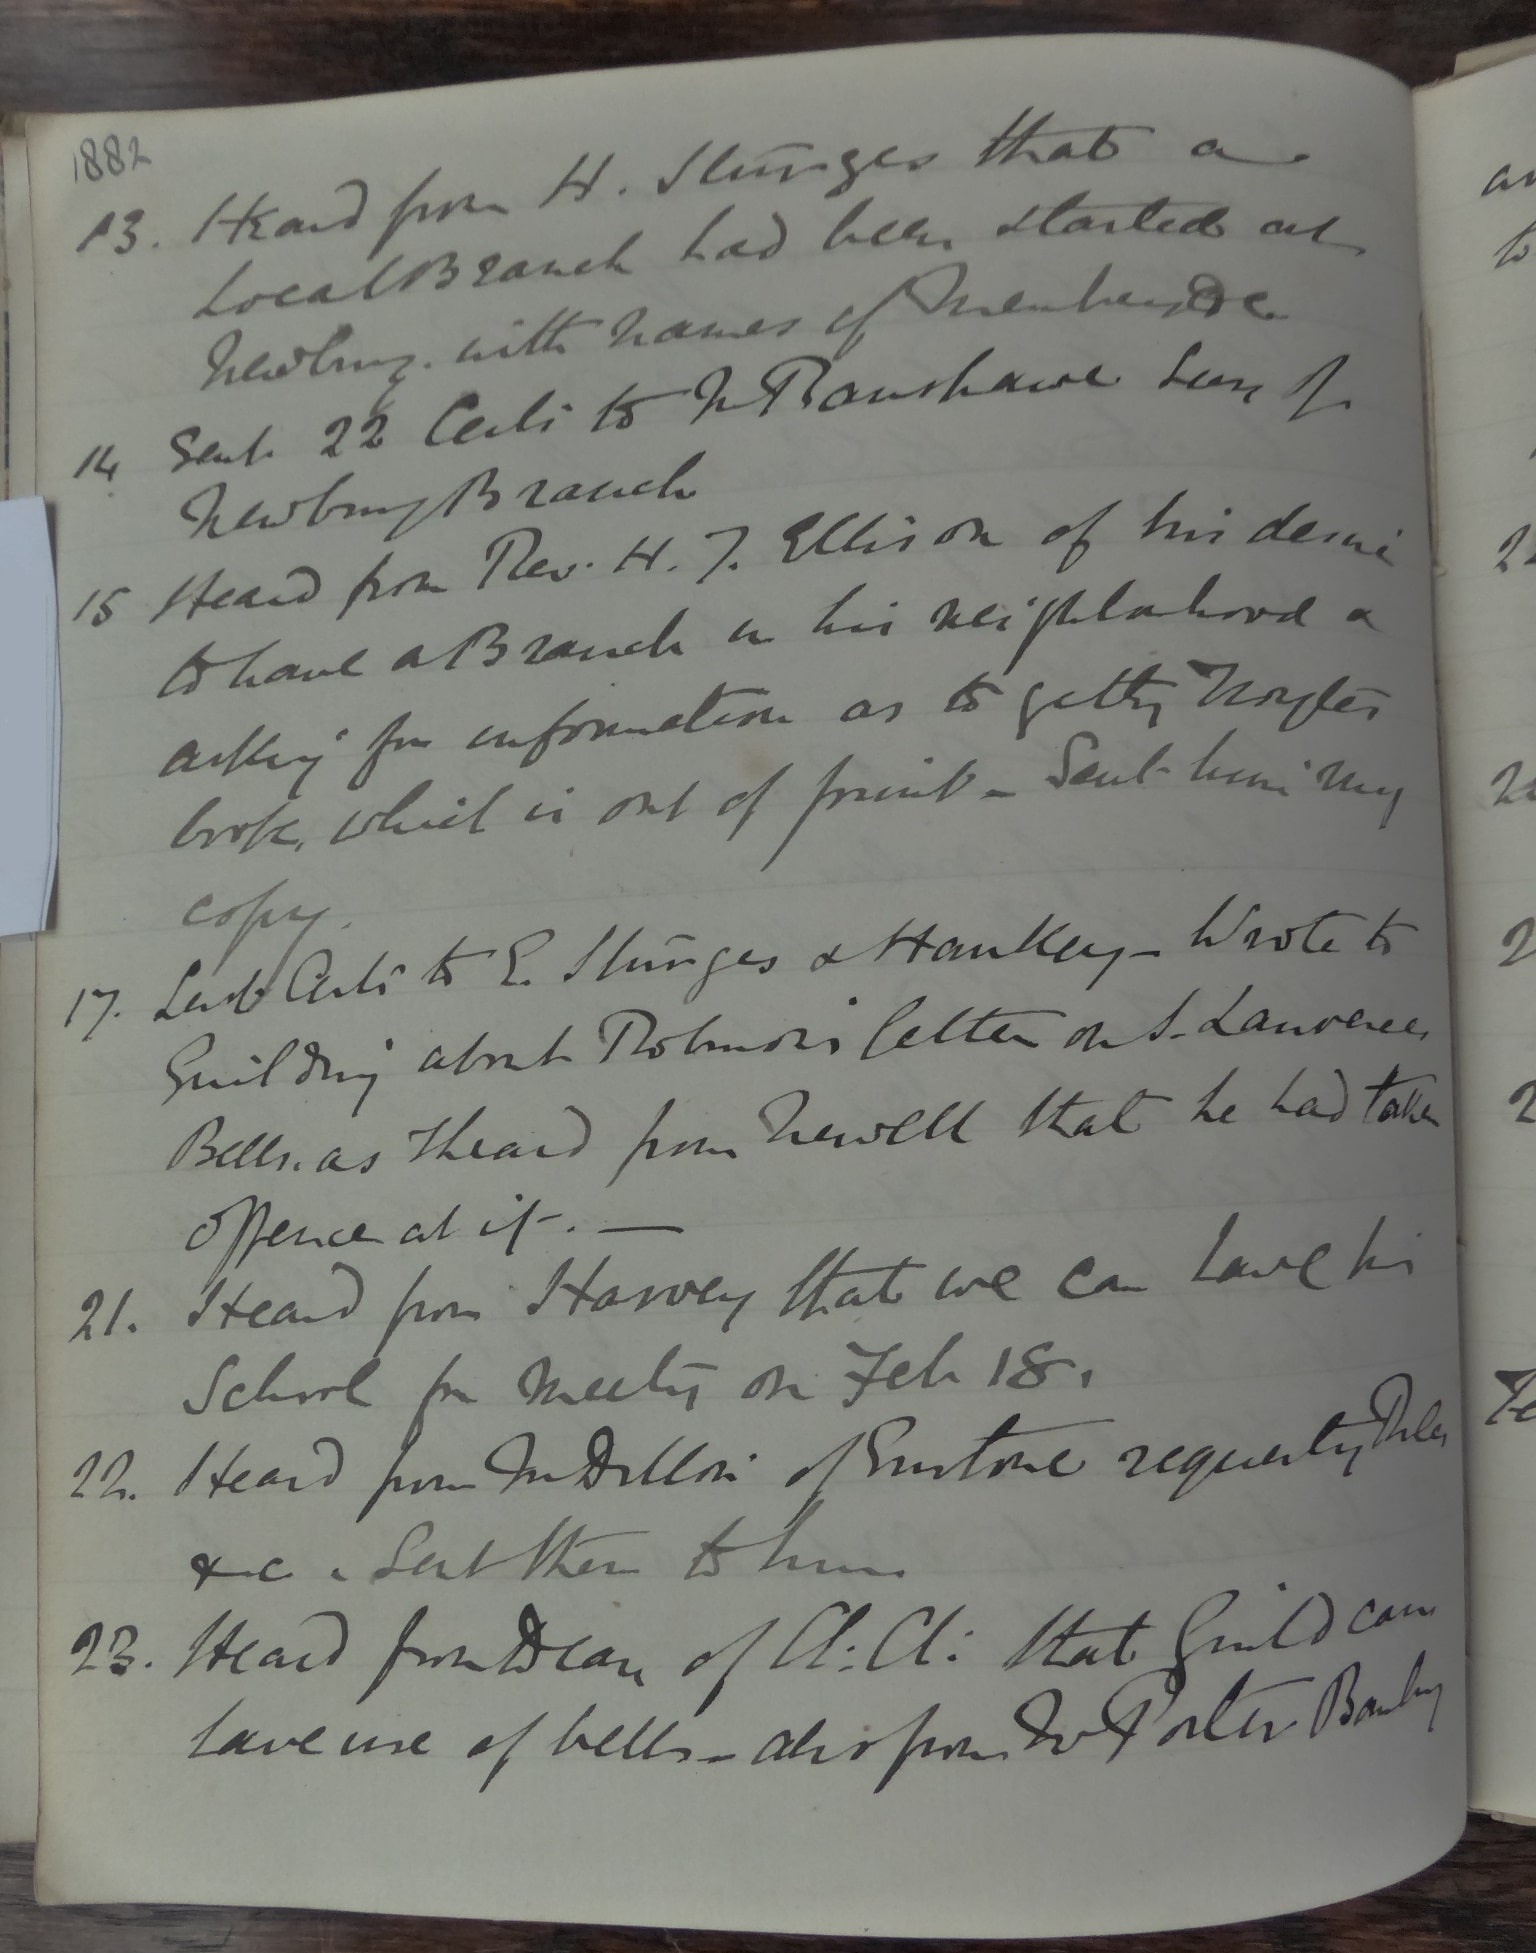 1882
13. Heard from H. Sturges that a
Local Branch had been started at
Newbury. with names of Members &c.
14 Sent 22 Certs to Mr Ranshawe Sec. of
Newbury Branch
15 Heard from Rev. H. J. Ellison of his desire
to have a Branch in his neighborhood &
asking for information as to getting Troyte's
book, which is out of print - Sent him my
copy.
17. Sent Certs to E. Sturges & Hankey - Wrote to
Guilding about Robinson's letter on S. Lawrence
Bells. as I heard from Newell that he had taken
offence at it. —
21. Heard from Harvey that we can have his
School for meeting on Feb 18.
22. Heard from Mr Dillon of Enstone requesting Rules
&c. Sent them to him.
23. Heard from Dean of Ch: Ch: that Guild can
have use of bells - also from Mr Porter Banbury